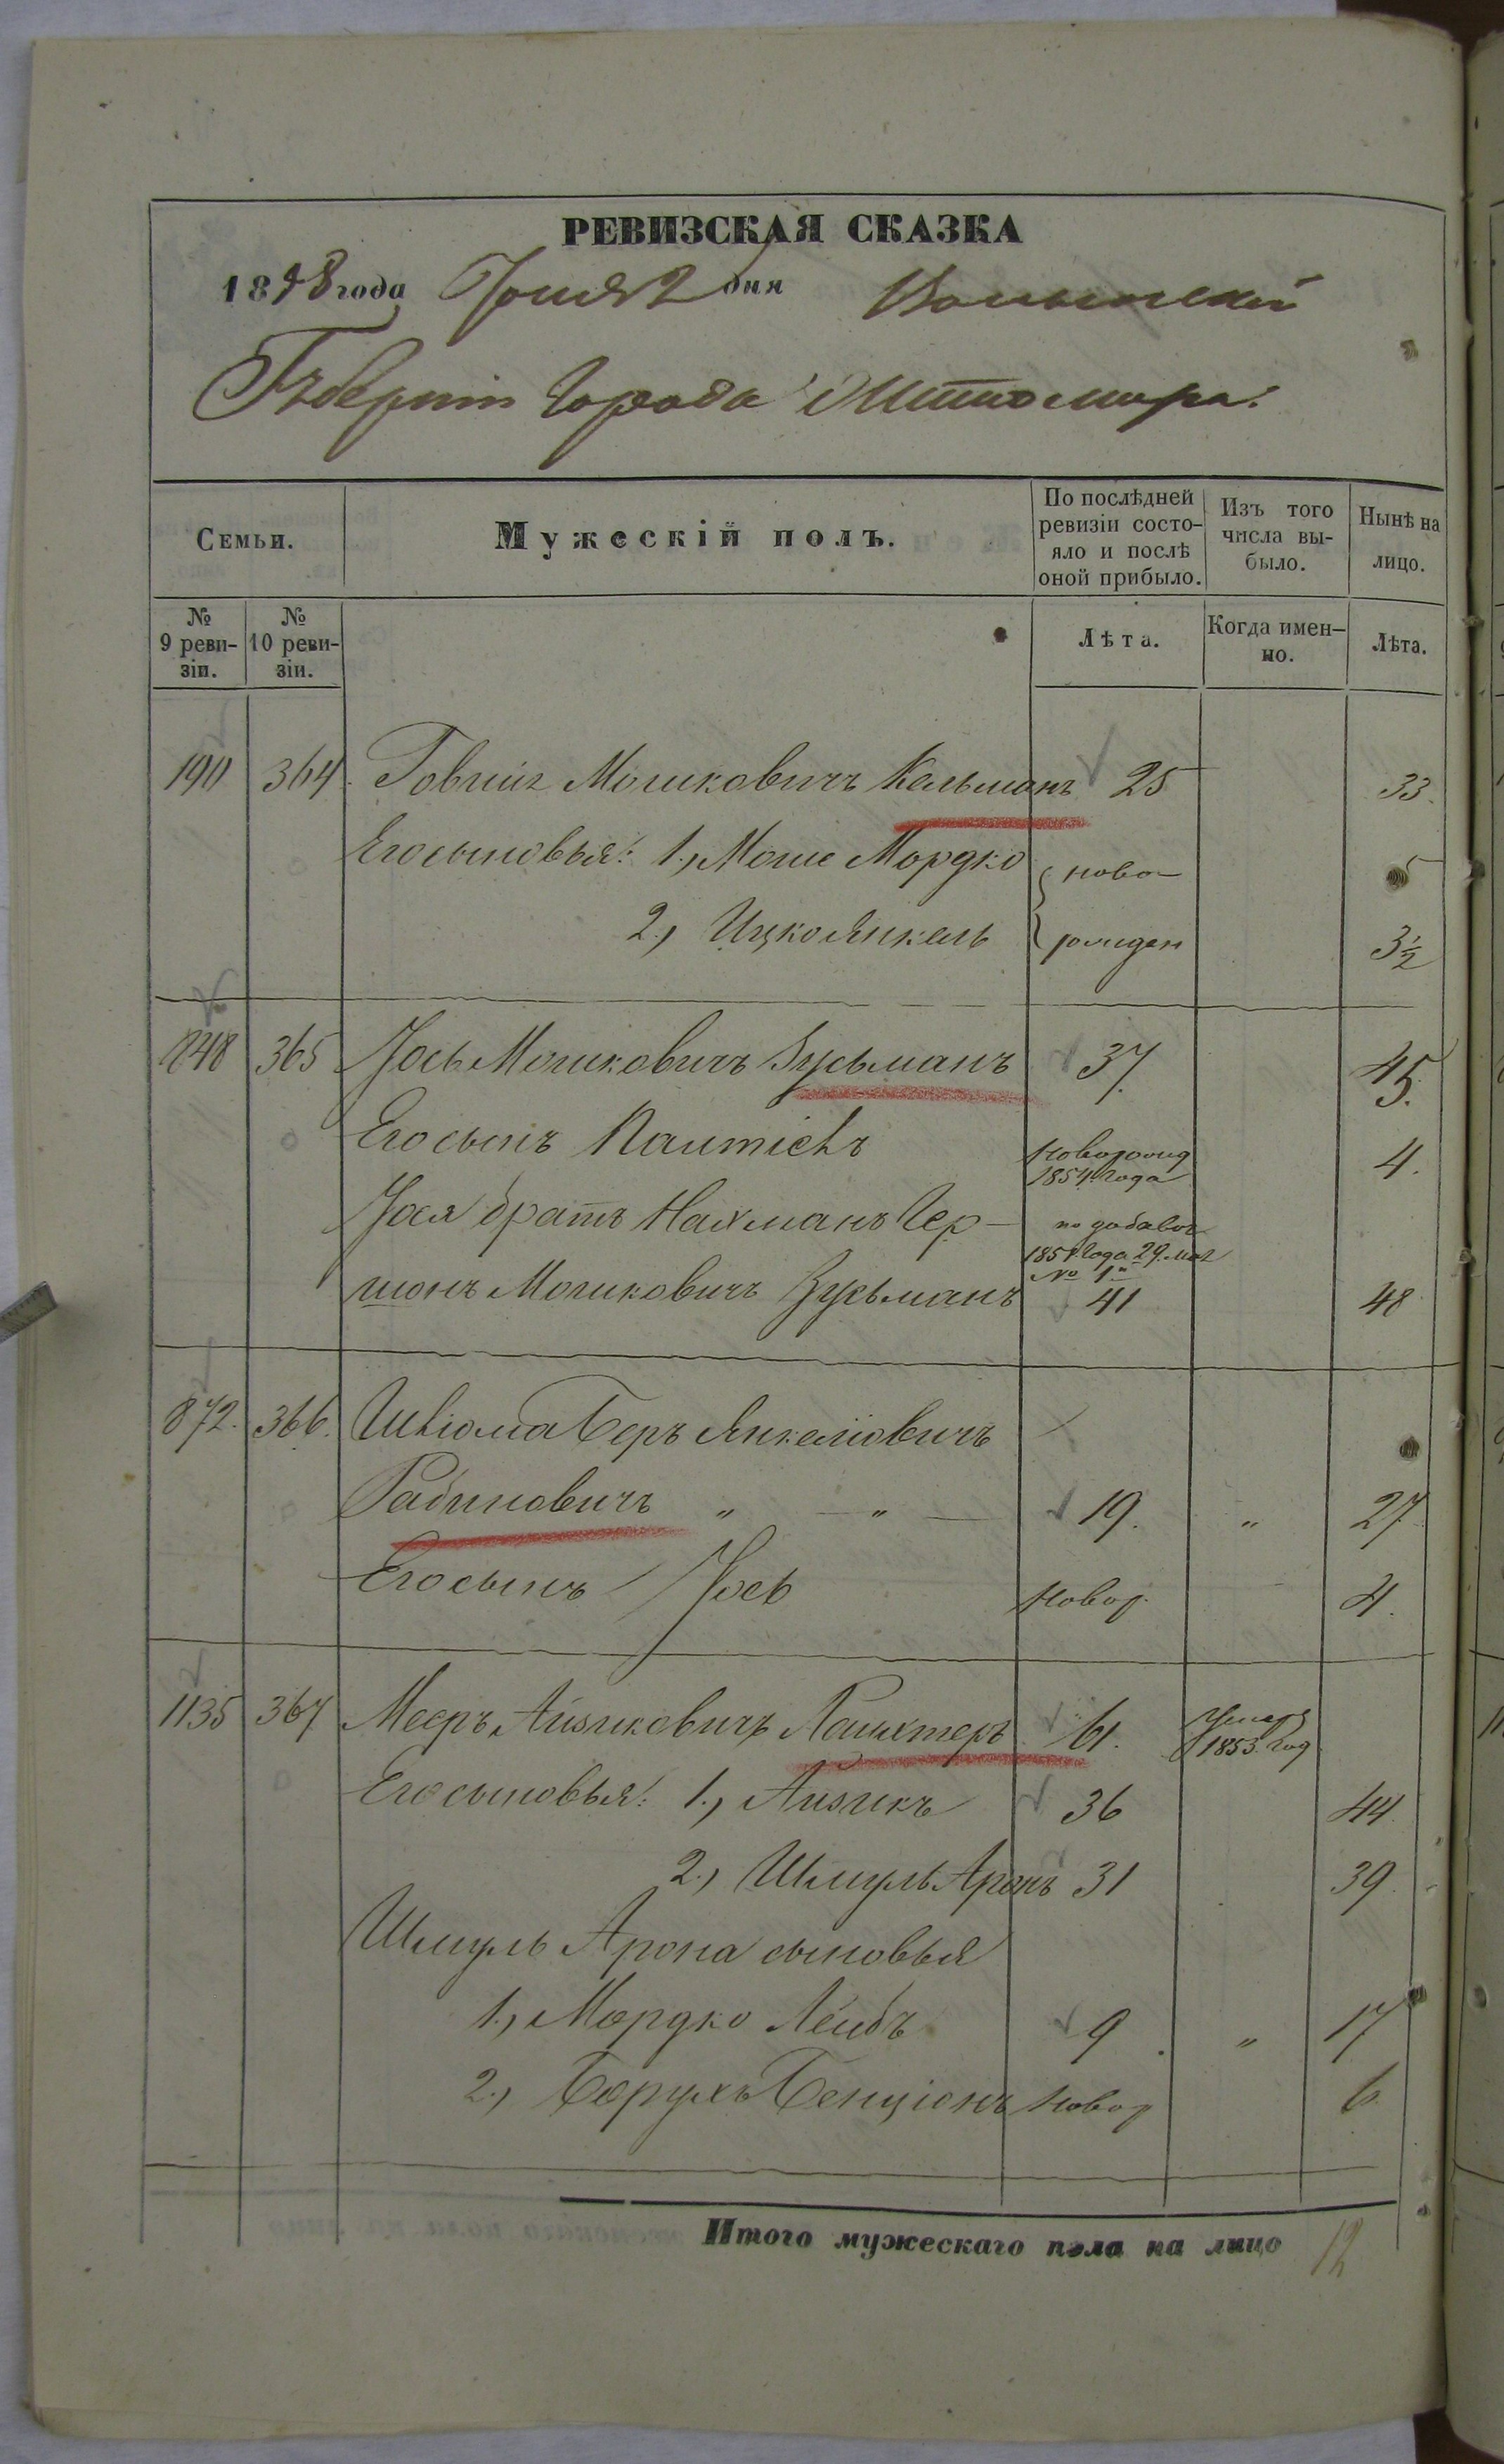 РЕВИЗСКАЯ СКАЗКА
1858 года Іюня 2 дня Волынской
Губерніи Города Житомира.
Семьи.
Мужескій полъ.
По послѣдней ревизіи состо-яло и послѣ оной прибыло.
Изъ того числа вы-было.
Нынѣ на лицо.
№ 9 реви-зіи.
№ 10 реви-зіи.
Лѣта.
Когда имен-но.
Лѣта.
190 364 Мошковичъ Кельманъ 25 33.
Его сыновья: 1., Моше Мордко ново- 5
2., Ицко Янкель рожден 3½
848 365 Іось Мошковичъ Зусьманъ 37. 45.
Его сынъ новорожд 1854 года 4.
Іося братъ Нахманъ Гер- по добавоч
1851 года 29. мая № 1
шонъ Мошковичъ Зусьманъ 41 48
872. 366. Шліома Беръ Янкеліовичъ
Рабиновичъ „ — „ — 19. „ 27
Его сынъ Іось новор. 4.
1135 367 Мееръ Айзиковичъ 61. умеръ 1853. год
Его сыновья: 1., Айзикъ 36 44
2., Шмуль Аронъ 31 39
Шмуль Арона сыновья
1., Мордко Лейбъ 9 „ 17
2., Борухъ Бенціонъ новор 6
Итого мужескаго пола на лицо 12